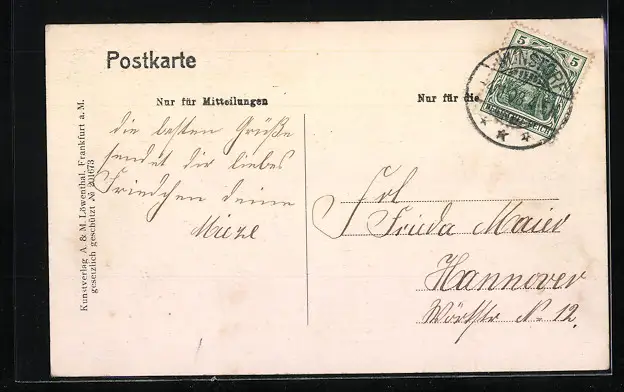 Postkarte
Nur für Mitteilungen
Nur für die
die besten Grüße
sendet dir liebes
Friedchen deine
Mieze
Frl
Frieda Maier
Hannover
Wörthstr No 12.
5 5
Kunstverlag A. & M. Löwenthal, Frankfurt a. M.
gesetzlich geschützt № 201673